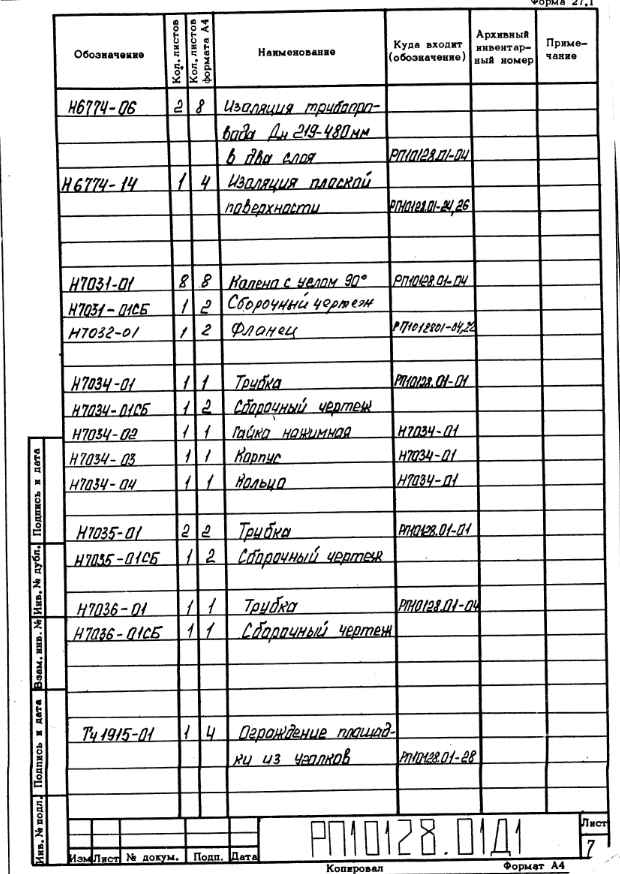 Форма 27.1
Обозначение Кол. листов Кол. листов формата А4 Наименование Куда входит (обозначение) Архивный инвентарный номер Примечание
Н6774-06 2 8 Изоляция трубопро-
вода Дн 219-480мм
в два слоя РП10128.01-04
Н6774-14 1 4 Изоляция плоской
поверхности РП10128.01-24,26
Н7031-01 8 8 Колена с углом 90° РП10128.01-04
Н7031-01СБ 1 2 Сборочный чертеж
Н7032-01 1 2 Фланец РП10128.01-04,22
Н7034-01 1 1 Трубка РП10128.01-01
Н7034-01СБ 1 2 Сборочный чертеж
Н7034-02 1 1 Гайка нажимная Н7034-01
Н7034-03 1 1 Корпус Н7034-01
Н7034-04 1 1 Кольцо Н7034-01
Н7035-01 2 2 Трубка РП10128.01-01
Н7035-01СБ 1 2 Сборочный чертеж
Н7036-01 1 1 Трубка РП10128.01-04
Н7036-01СБ 1 1 Сборочный чертеж
ТЧ1915-01 1 4 Ограждение площад-
ки из уголков РП10128.01-28
Подпись и дата
Инв. № дубл.
Взам. инв. №
Подпись и дата
Инв. № подл.
Изм Лист № докум. Подп. Дата
РП10128.01Д1
Лист
7
Копировал Формат А4